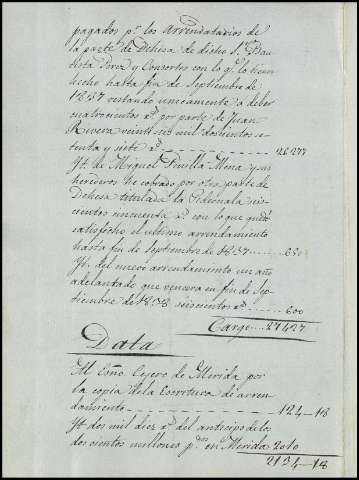 pagados pr. los Arrendatarios de
la parte de Dehesa de dicho Sr. Bau
tista Perez y Consortes con lo qe. lo tienen
hecho hasta fin de Septiembre de
1837 restando unicamente a deber
cuatrocientos rs. por parte de Juan
Rivera veinti seis mil doscientos se-
tenta y siete rs. 26.277
Yt. de Miguel Pinilla Mena y sus
herederos he cobrado por otra parte de
Dehesa titulada la Pedernala seis-
cientos cincuenta rs. con lo que quedó
satisfecho el ultimo arrendamiento
hasta fin de Septiembre de 1837 650
Yt. del nuevo arrendamiento un año
adelantado que vencera en fin de Sep-
tiembre de 1838 seiscientos rs. 600
Cargo 27527
Data
Al Esño. Cejero de Merida por
la copia de la Escritura de arren-
damiento 124-18
Yt. dos mil diez rs. del anticipo de los
doscientos millones ps. en Merida 2010
2134-18